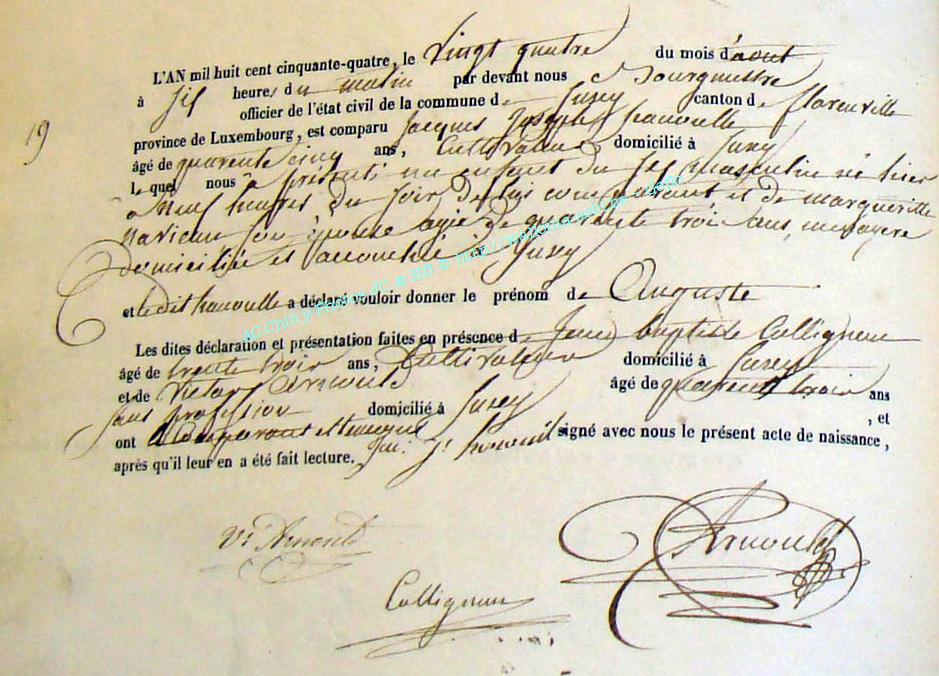 L'AN mil huit cent cinquante-quatre, le vingt quatre du mois d'aout
à six heures du matin par devant nous Bourgmestre
officier de l'état civil de la commune de Jusey canton de florenville
19
province de Luxembourg, est comparu Jacques Joseph hanoulle
âgé de quarente cinq ans, Cultivateur domicilié à Jusey
lequel nous a présenté un enfant du sex masculin né hier
à neuf heures du soir de lui comparant et de margueritte
navieau son épouse agée de quarente trois ans, menagere
domiciliée et accouchée à Jusey
et le dit hanoulle a déclaré vouloir donner le prénom de Auguste
Les dites déclaration et présentation faites en présence de Jean baptiste Collignon
âgé de trente trois ans, Cultivateur domicilié à Jusey
et de Victor Arnould âgé de quarente trois ans
sans profession domicilié à Jusey , et
ont signé avec nous le présent acte de naissance,
après qu'il leur en a été fait lecture.
Vr Arnould
Arnould
Collignon